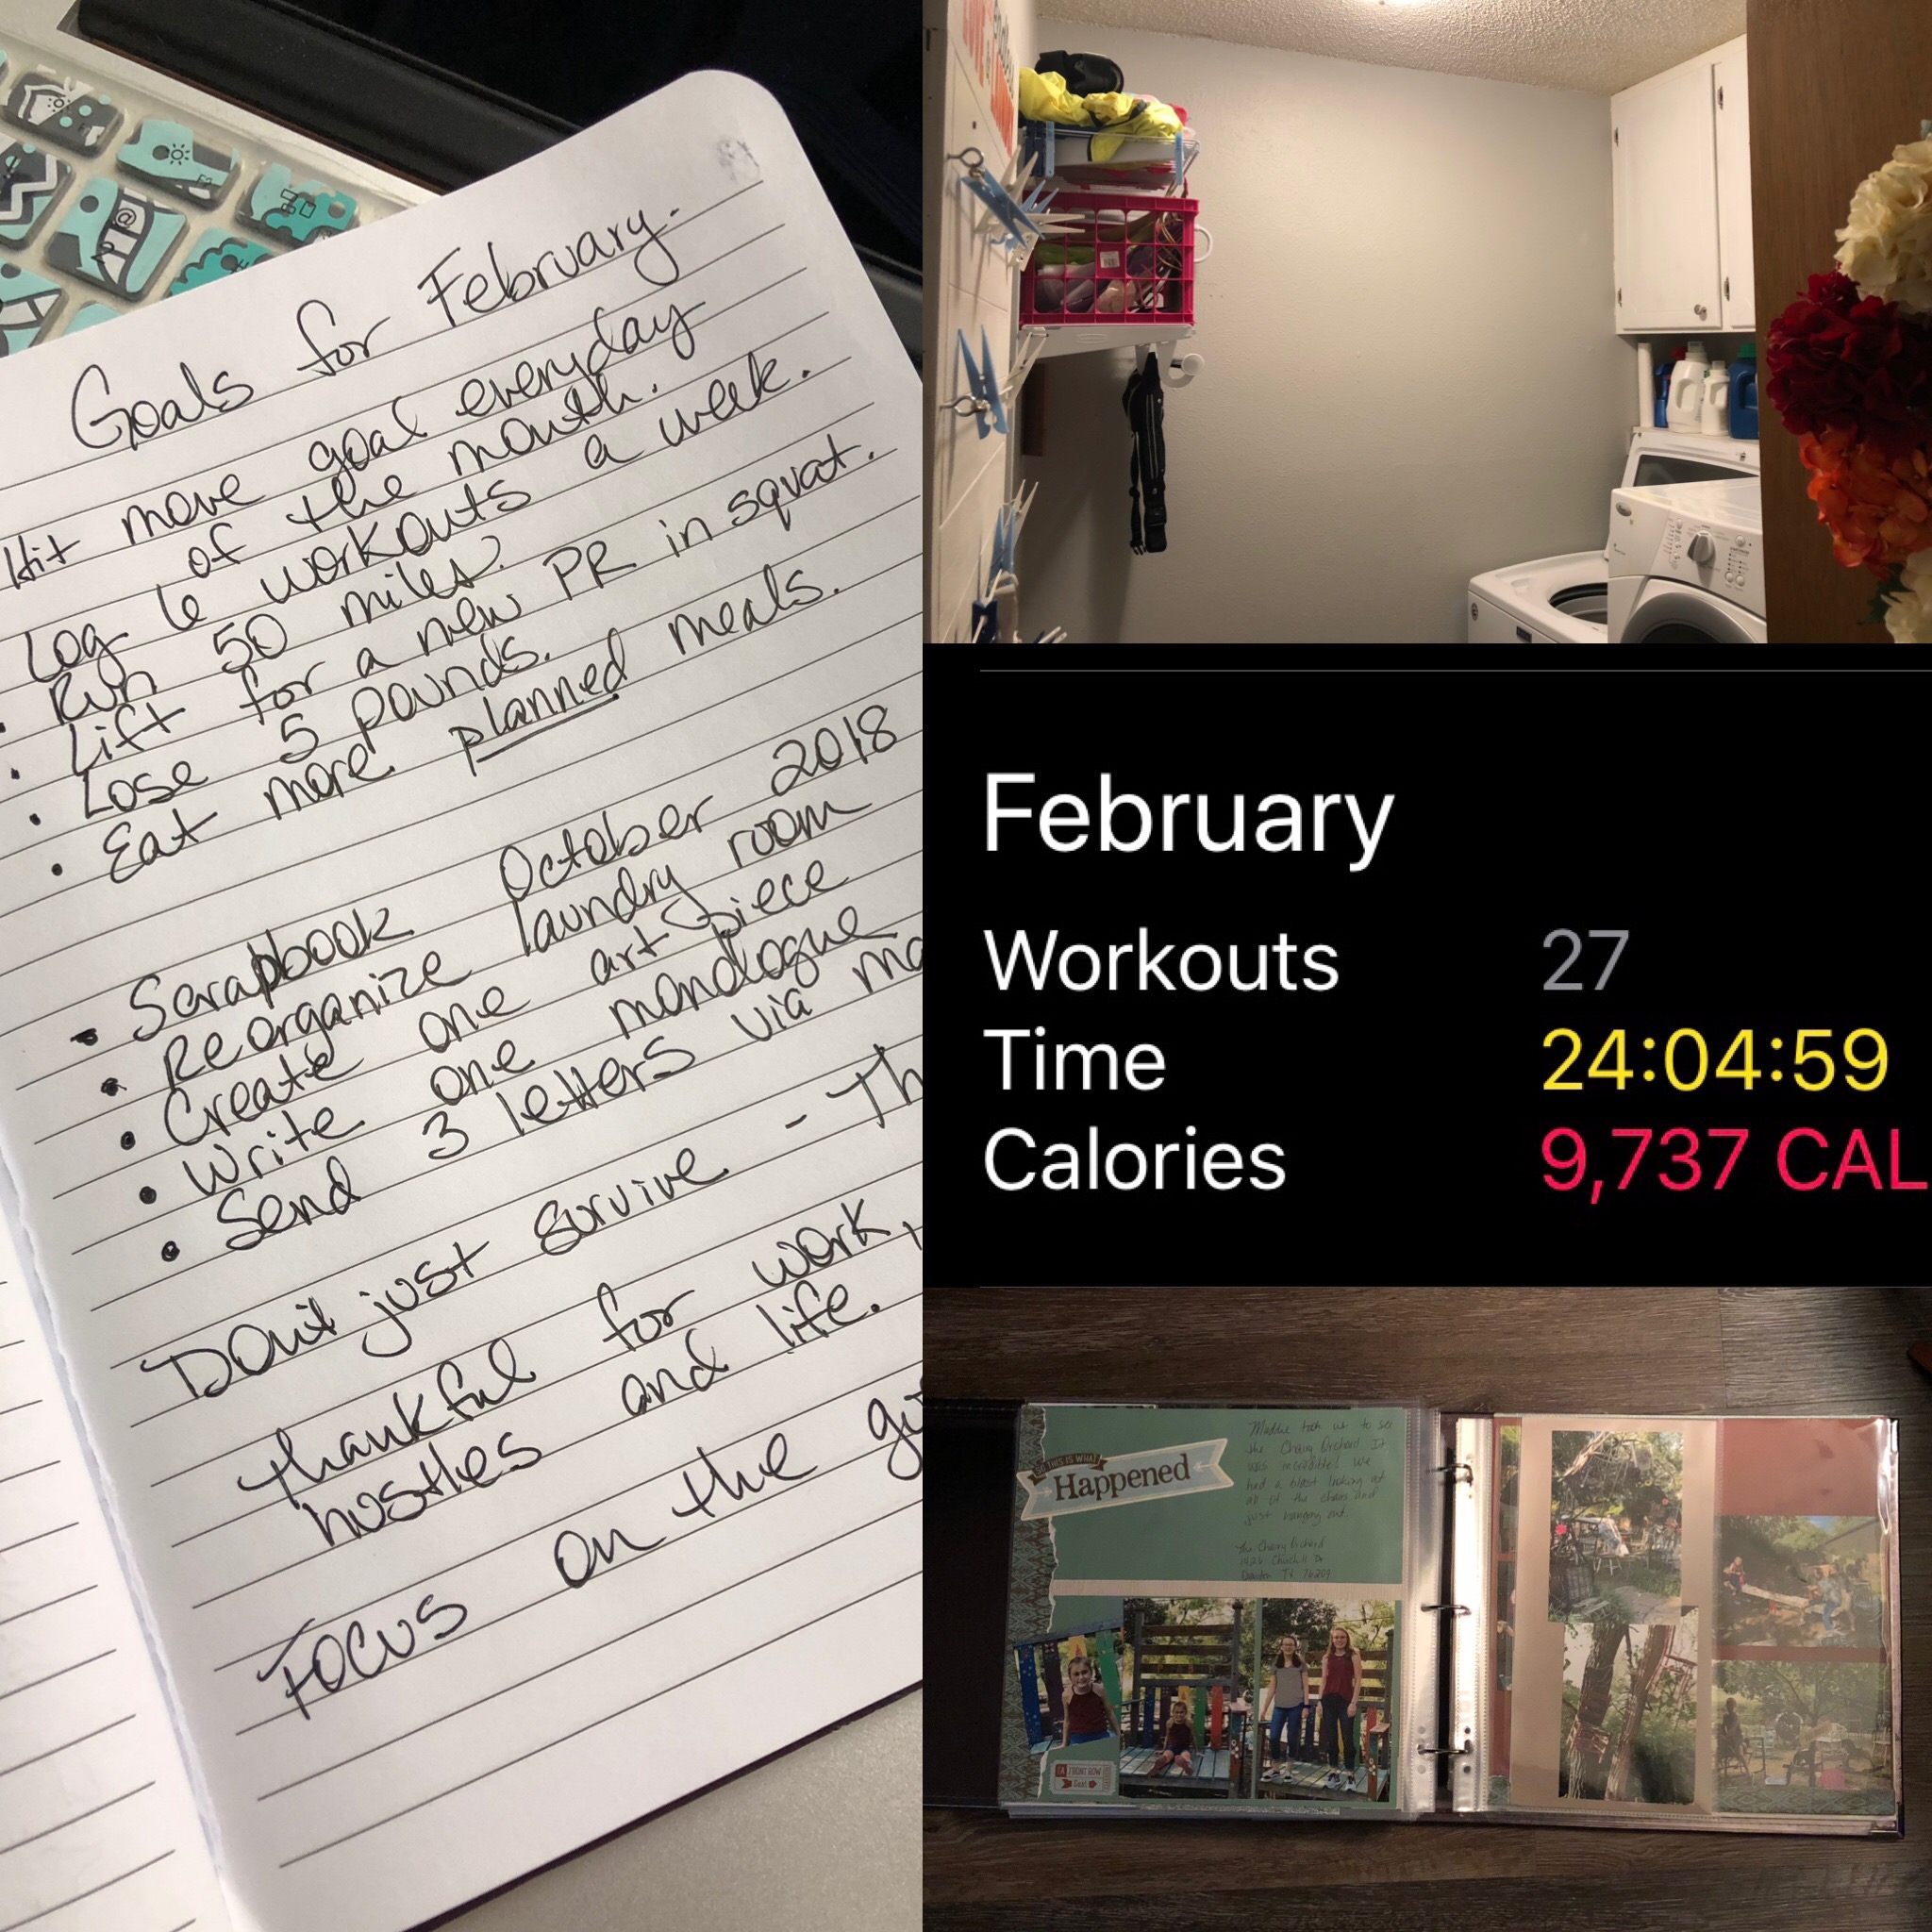 Goals for February.
Hit move goal everyday
of the month.
Log 6 workouts a week.
• Run 50 miles.
• Lift for a new PR in squat.
• Lose 5 pounds.
• Eat more planned meals.
• Scrapbook October 2018
• Reorganize laundry room
• Create one art piece
• Write one monologue
• Send 3 letters via
Don't just survive - Th
thankful for work,
hustles and life.
Focus on the
February
Workouts 27
Time 24:04:59
Calories 9,737 CAL
THIS IS WHAT
Happened
Maddie took us to see
the Chairy Orchard It
was incredible. We
had a blast looking at
all of the chairs and
just hanging out.
The Chairy Orchard
Churchill Dr
Denton TX
FRONT ROW
Seat